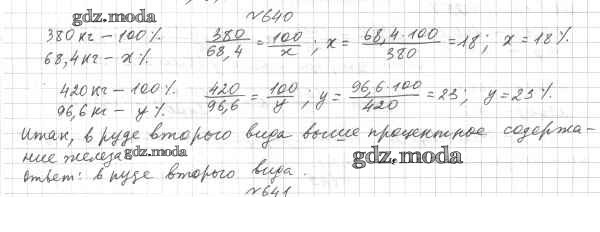 №640
gdz.moda
380 кг – 100% 380/68,4 = 100/x ; x = 68,4·100/380 = 18; x = 18%.
68,4 кг – x%
420 кг – 100% 420/96,6 = 100/y ; y = 96,6·100/420 = 23; y = 23%.
96,6 кг – y%.
Итак, в руде второго вида высшее процентное содержа-
ние железа gdz.moda
gdz.moda
Ответ: в руде второго вида.
№641